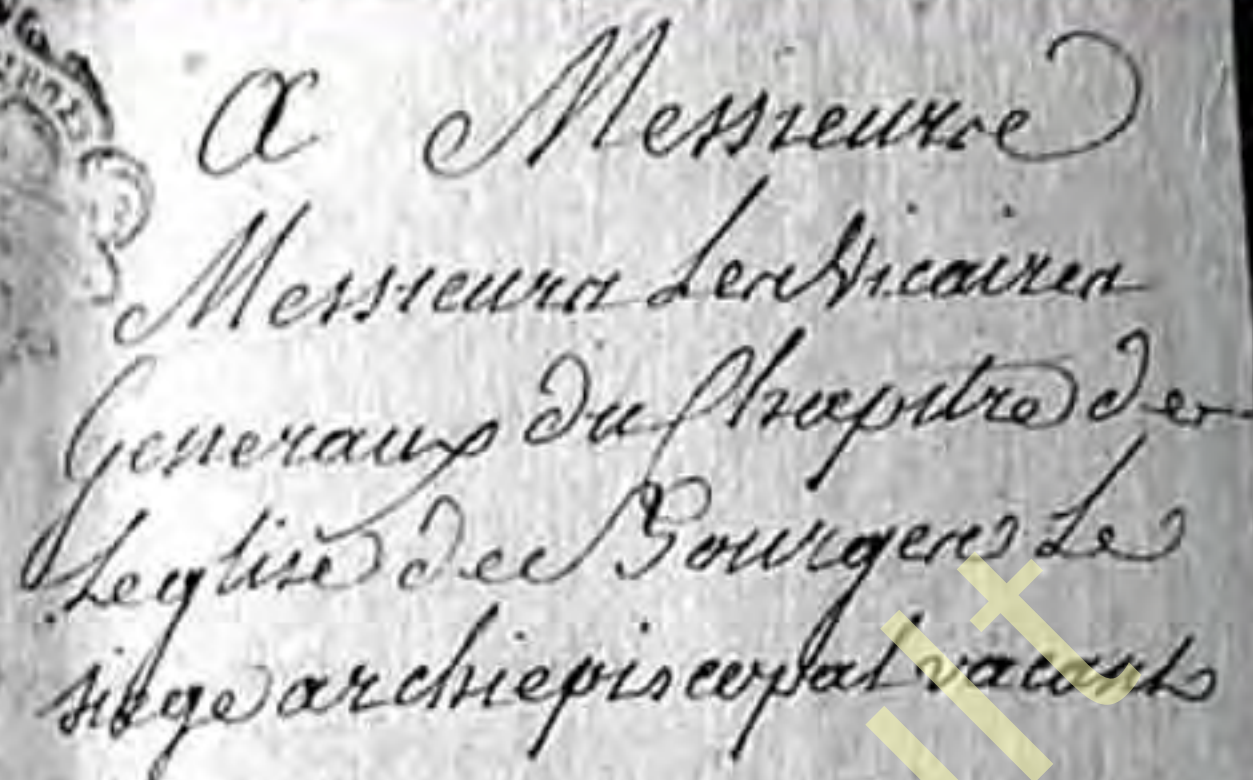 A Messieurs
Messieurs Les Vicaires
Generaux du Chapitre de
Leglise de Bourges Le
siege archiepiscopal vacant